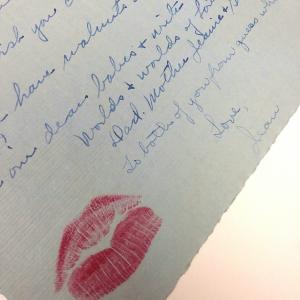 sh you c
- have walnuts
our dear babies + write
Worlds + worlds of lo
Dad. Mother Jeanne +
To both of you from guess wh
Love,
Jean